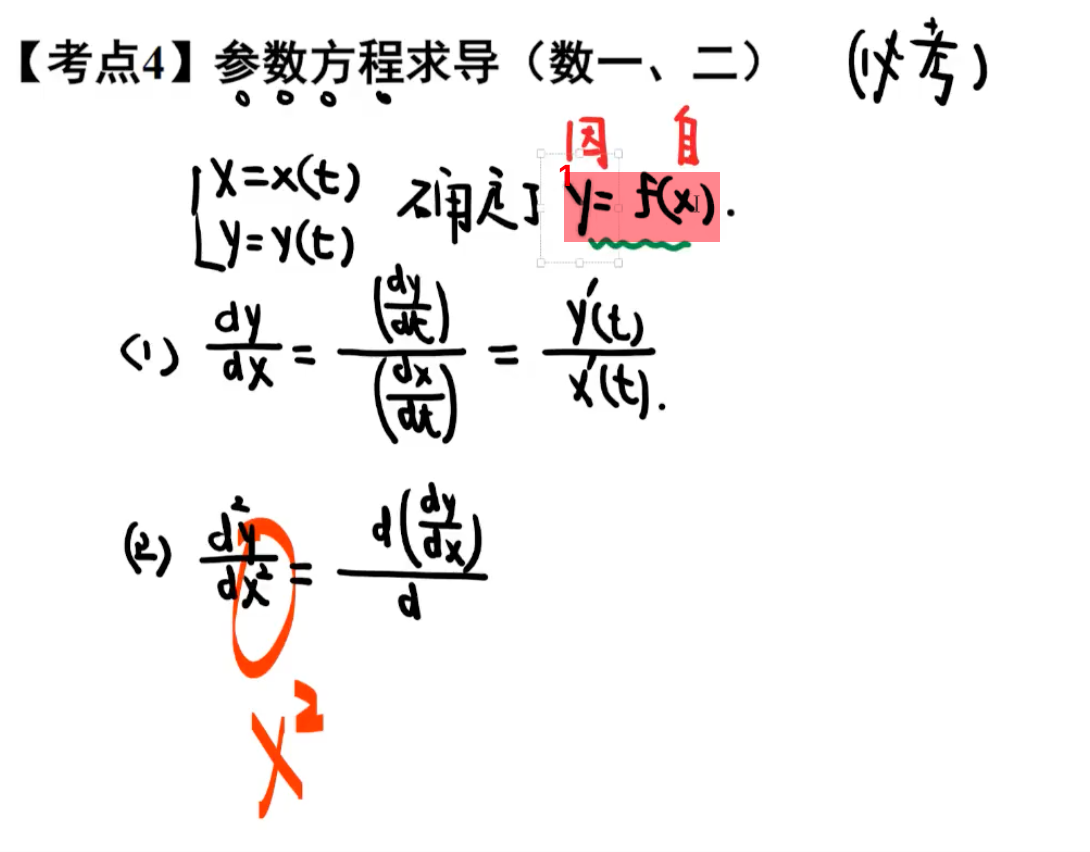 【考点4】参数方程求导（数一、二） (必考)
因 自
{x=x(t) y=y(t) 确定了 1 y=f(x).
(1) dy/dx = (dy/dt)/(dx/dt) = y'(t)/x'(t).
(2) d²y/dx² = d(dy/dx)/d
x²